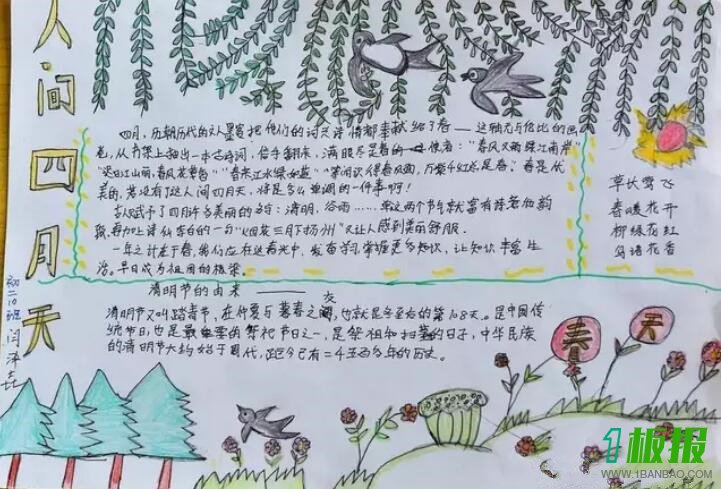 人间四月天
初二10班
四月,历朝历代的文人墨客把他们的词文诗情都奉献给了春——这轴无与伦比的画
卷,从书架上抽出一本古诗词,信手翻来,满眼尽是春的使者:"春风又绿江南岸"
"迟日江山丽,春风花草香""春来江水绿如蓝""等闲识得春风面,万紫千红总是春"春是优
美的,若没有了这人间四月天,将是多么
的一件事啊!
古人赋予了四月许多美丽的
:清明,谷雨……单这两个节气就富有诗意
再加上诗仙李白的一句"烟花三月下扬州"又让人感到美丽舒服.
一年之计在于春,我们应在这春光中,发奋学习,掌握更多知识,让知识丰富生
活.早日成为祖国的栋梁.
清明节的由来——
清明节又叫踏青节,在仲春与暮春之
,也就是冬至后的第108天。是中国传
统节日,也是最重要的祭祀节日之一,是祭祖和扫墓的日子,中华民族
的清明节大约始于周代,距今已有二千五百多年的历史。
草长莺飞
春暖花开
柳绿花红
鸟语花香
春天
1板报
WWW.1BANBAO.COM